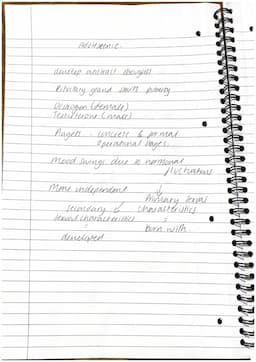 Adolescence:
develop abstract thoughts
Pituitary gland starts puberty
Oestrogen (female)
Testosterone (male)
Piagets - concrete & formal
operational stages.
Mood swings due to hormonal
fluctuations
More independent
Primary sexual
secondary & characteristics
sexual characteristics =
= born with
developed